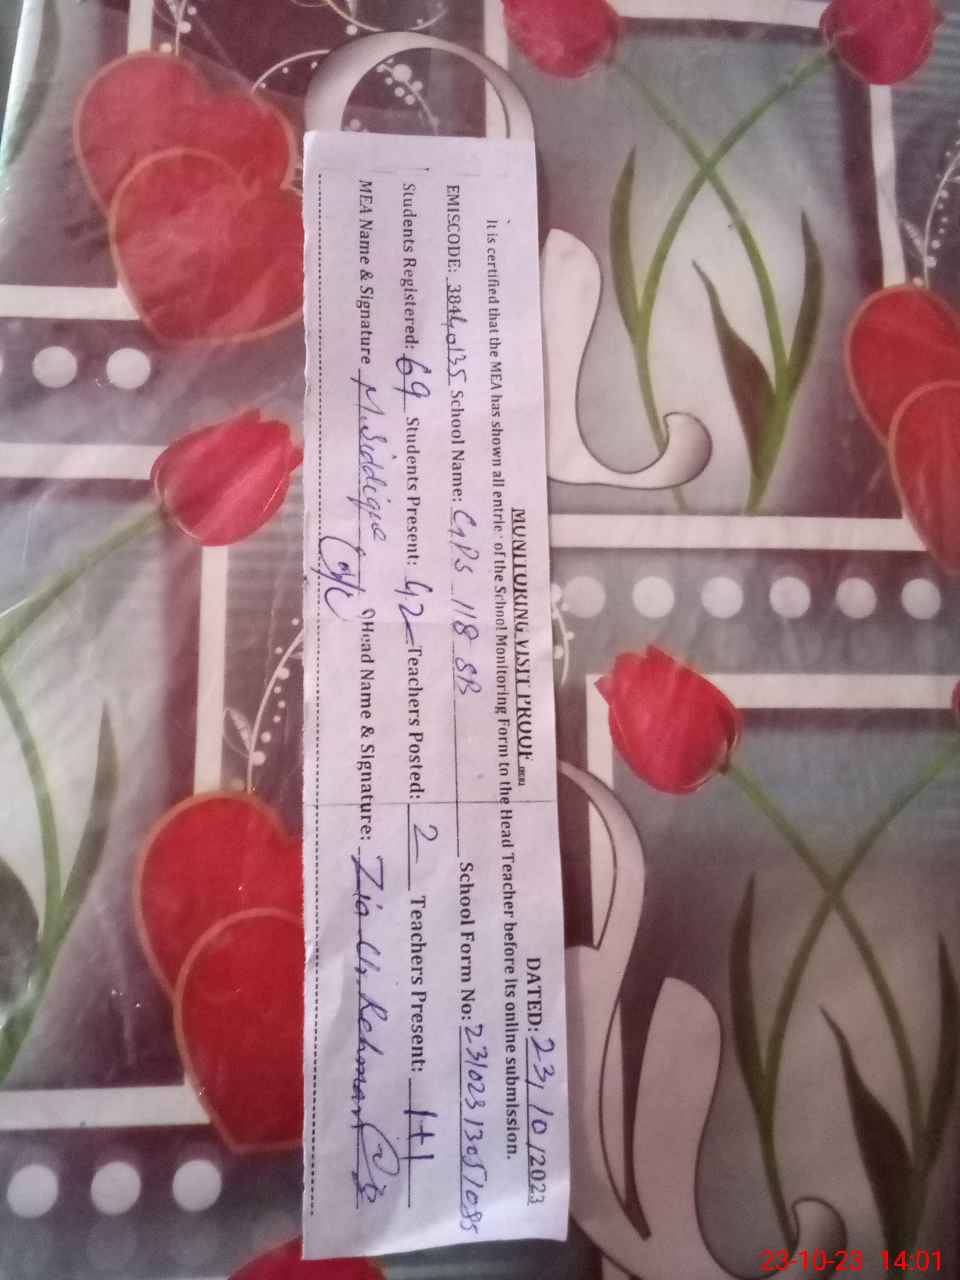 MONITORING VISIT PROOF
DATED: 23/10/2023
It is certified that the MEA has shown all entrie of the School Monitoring Form to the Head Teacher before its online submission.
EMISCODE: 38440135 School Name: GPS 118 SB School Form No: 231023130571085
Students Registered: 69 Students Present: 42 Teachers Posted: 2 Teachers Present: 1+1
MEA Name & Signature M.Siddique Head Name & Signature: Zia Ur Rehman
23-10-23 14:01